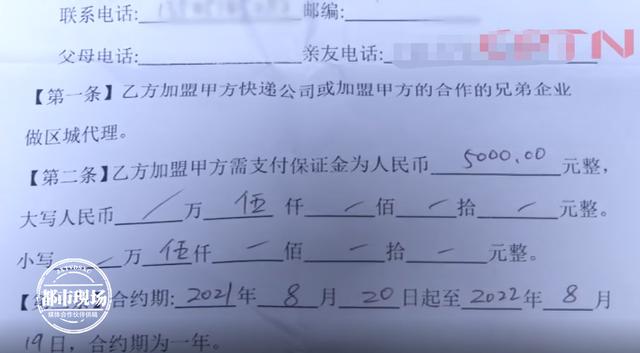 联系电话: 邮编:
父母电话: 亲友电话: CPTN
【第一条】乙方加盟甲方快递公司或加盟甲方的合作的兄弟企业
做区城代理。
【第二条】乙方加盟甲方需支付保证金为人民币 5000.00 元整,
大写人民币 / 万 伍 仟 一 佰 一 拾 一 元整。
小写 万 伍 仟 一 佰 一 拾 一 元整。
【第 合约期: 2021 年 8 月 20 日起至 2022 年 8 月
19日,合约期为一年。
都市现场
媒体合作伙伴供稿